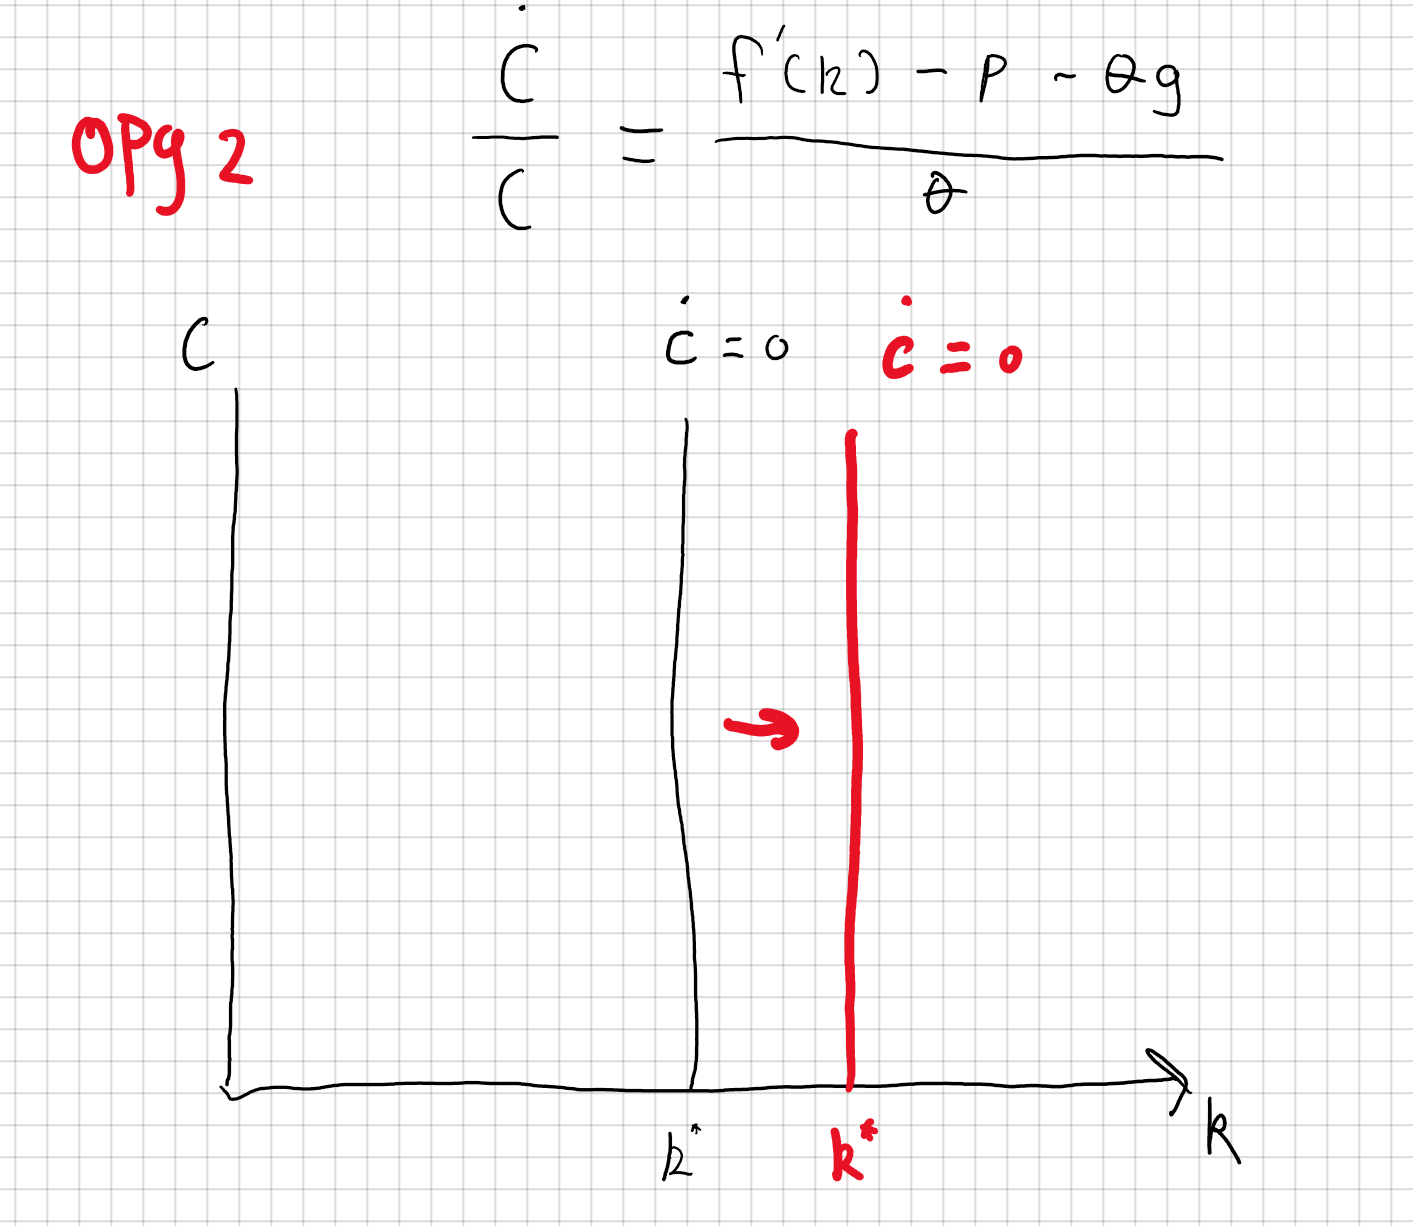 opg 2
Ċ/C = (f'(k) - p - θg)/θ
C
ċ = 0
ċ = 0
k
k*
k*